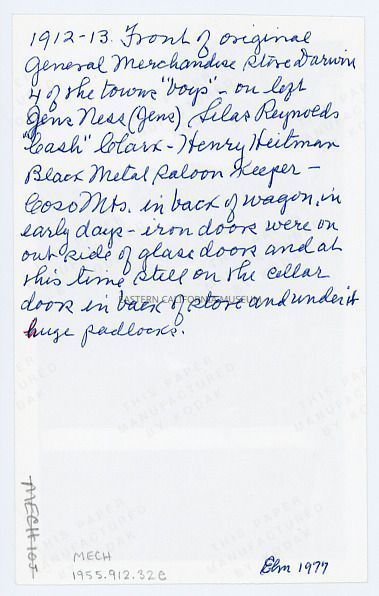 1912-13. Front of original
General Merchandise store Darwin
4 of the towns "boys" - on left
Jens Ness (Jens) Silas Reynolds
"Cash" Clark - Henry Heitman
Black Metal Saloon Keeper -
Coso Mts. in back of wagon, in
early days - iron doors were on
out side of glass doors and at
this time still on the cellar
doors in back of store and under it
huge padlocks.
EASTERN CALIFORNIA MUSEUM
THIS PAPER
MANUFACTURED
BY KODAK
MECH 105
MECH
1955.912.32c
Elm 1977